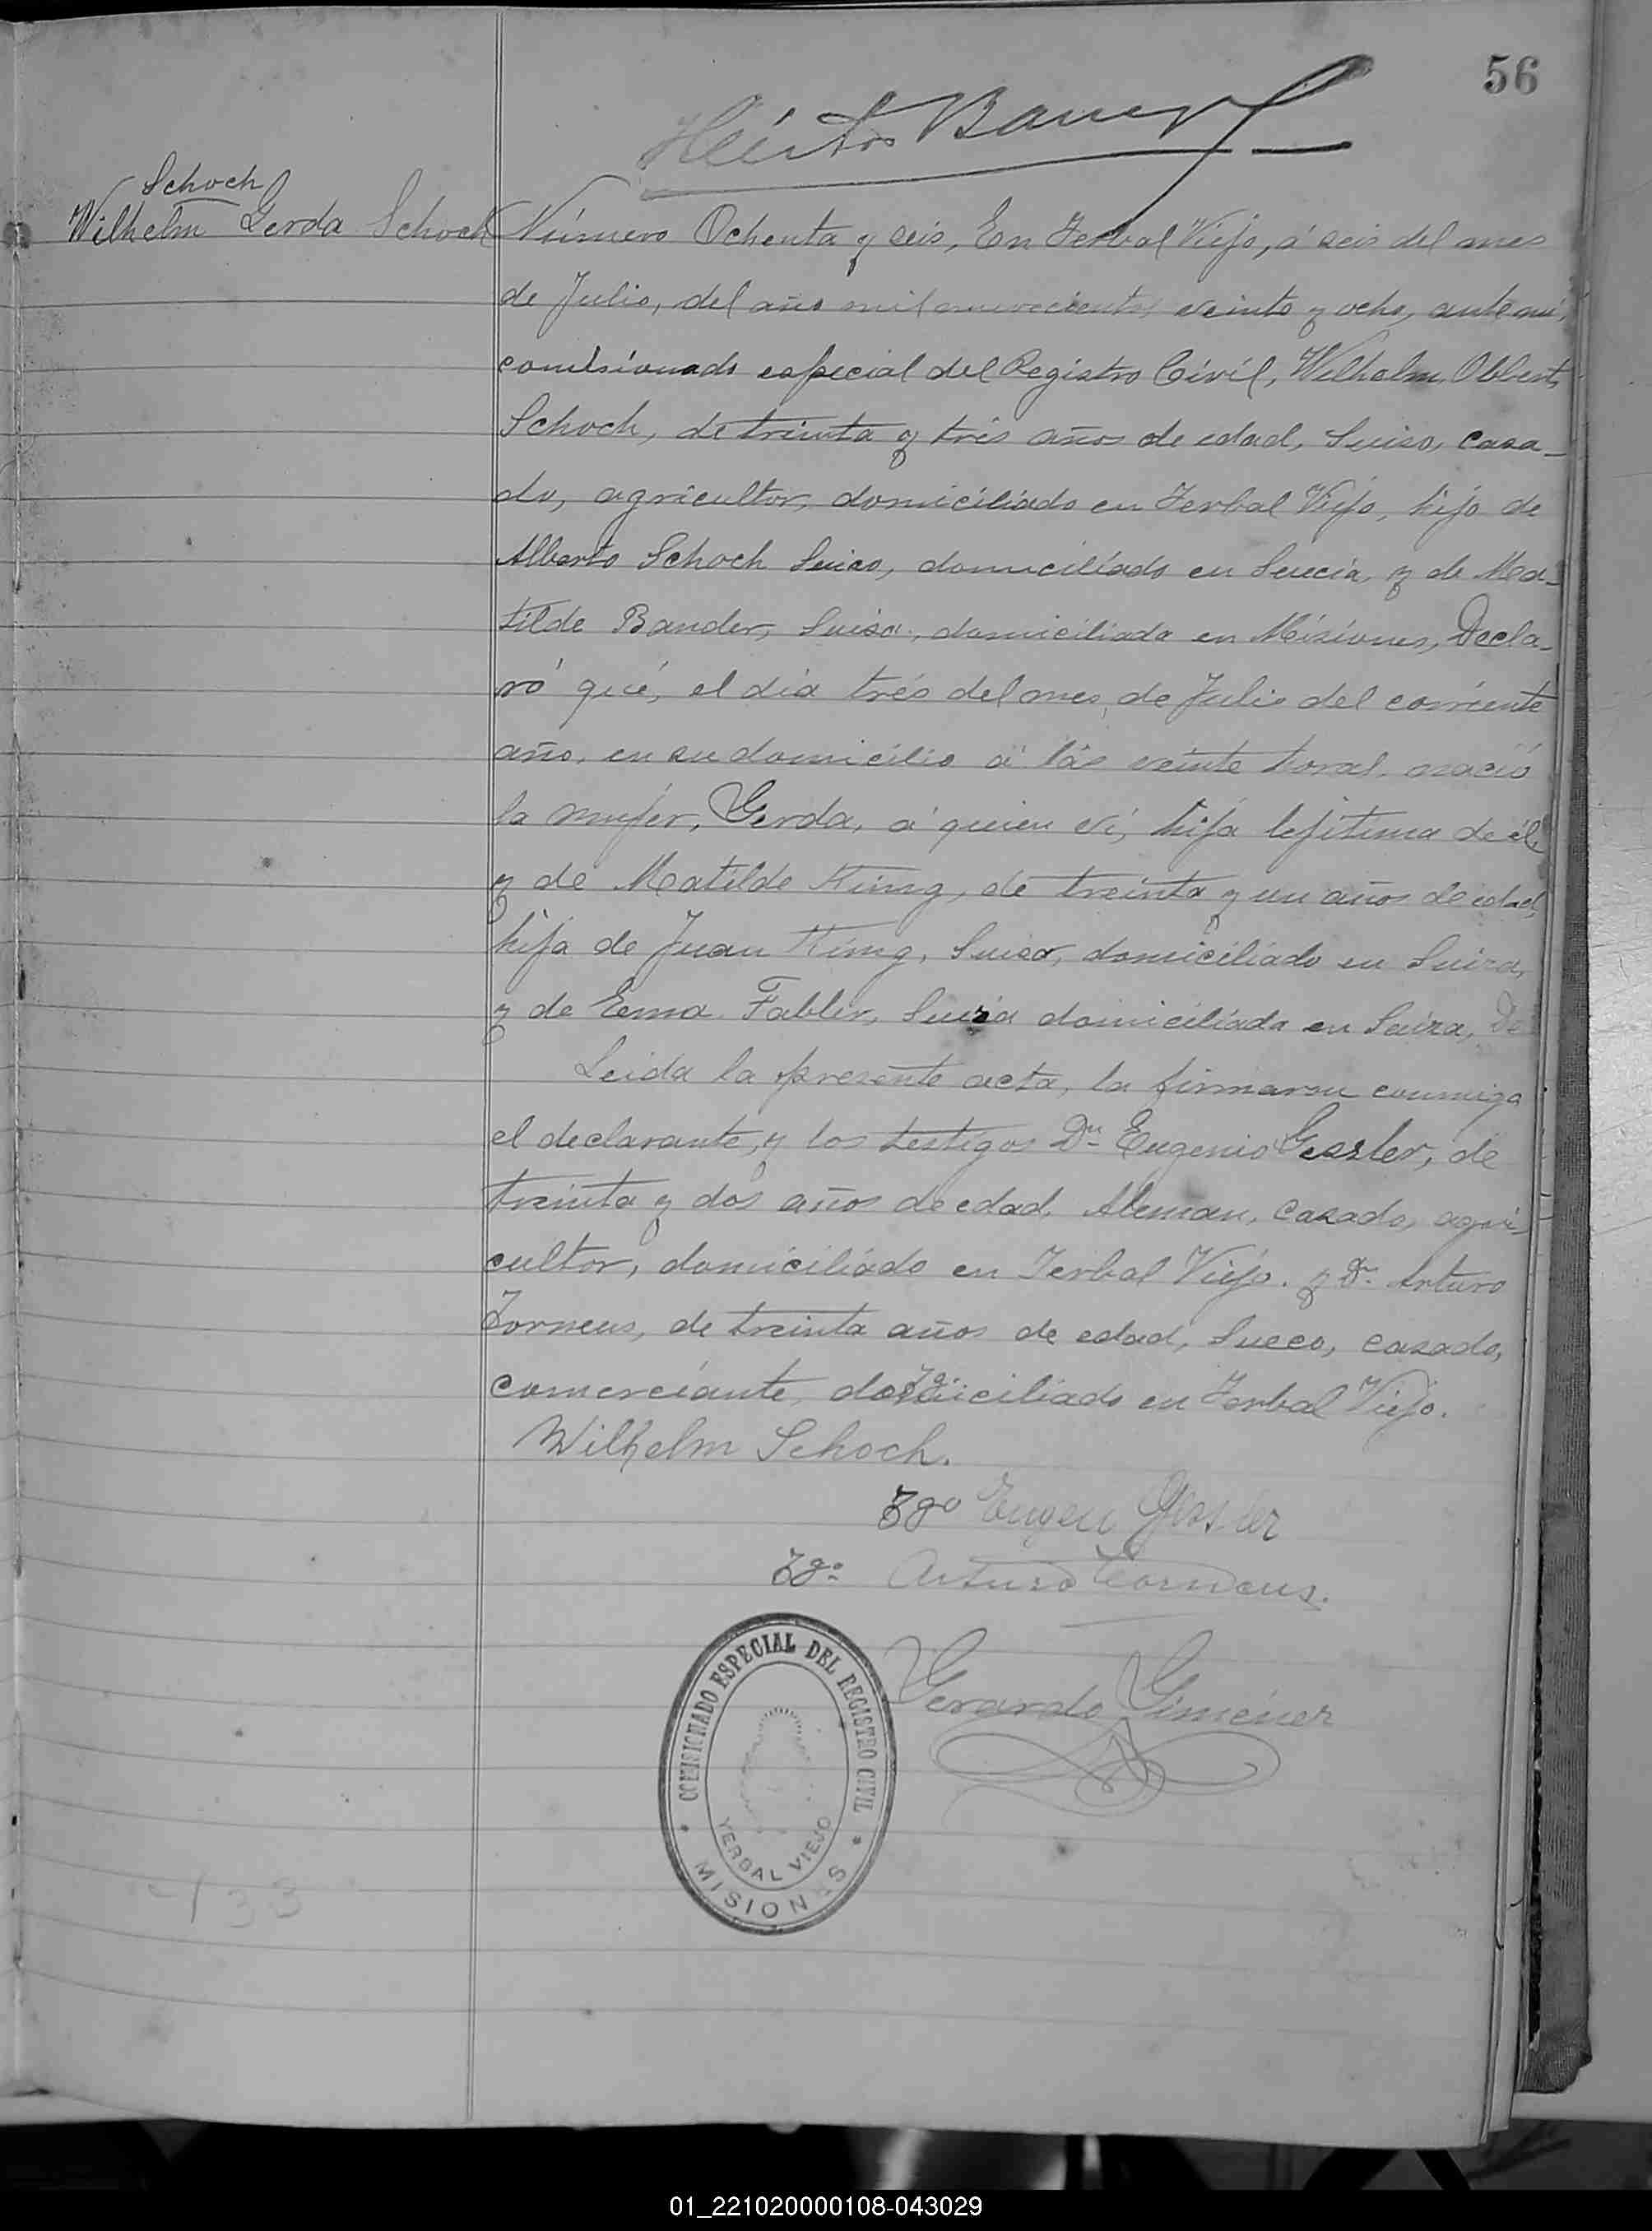 56
Héctor Bauer
Schoch
Wilhelm Gerda Schoch
Número Ochenta y seis, En Yerbal Viejo, á seis del mes
de Julio, del año mil novecientos veinte y ocho, ante mi,
comisionado especial del Registro Civil, Wilhelm Olbert
Schoch, de treinta y trés años de edad, Suiso, casa-
do, agricultor, domiciliado en Yerbal Viejo, hijo de
Alberto Schoch Suiso, domiciliado en Suecia, y de Ma-
tilde Bander, Suisa, domiciliada en Misiones, Decla-
ró qué, el día trés del mes, de Julio del corriente
año, en su domicilio á las veinte horas, nació
la mujer, Gerda, á quien ví, hija lejitima de él,
y de Matilde Küng, de treinta y un años de edad,
hija de Juan Küng, Suiso, domiciliado en Suiza,
y de Ema Fabler, Suiza domiciliada en Suiza, De
Leida la presente acta, la firmaron conmigo
el declarante, y los testigos Dn Eugenio Gessler, de
treinta y dos años de edad, Aleman, casado, agri-
cultor, domiciliado en Yerbal Viejo. y Dn Arturo
Torneus, de treinta años de edad, Sueco, casado,
comerciante, domiciliado en Yerbal Viejo.
Wilhelm Schoch.
Tgo Eugen Gessler
Tgo Arturo Torneus.
Gerardo Giménez
COMISIONADO ESPECIAL DEL REGISTRO CIVIL
YERBAL VIEJO
* MISIONES *
133
01_221020000108-043029